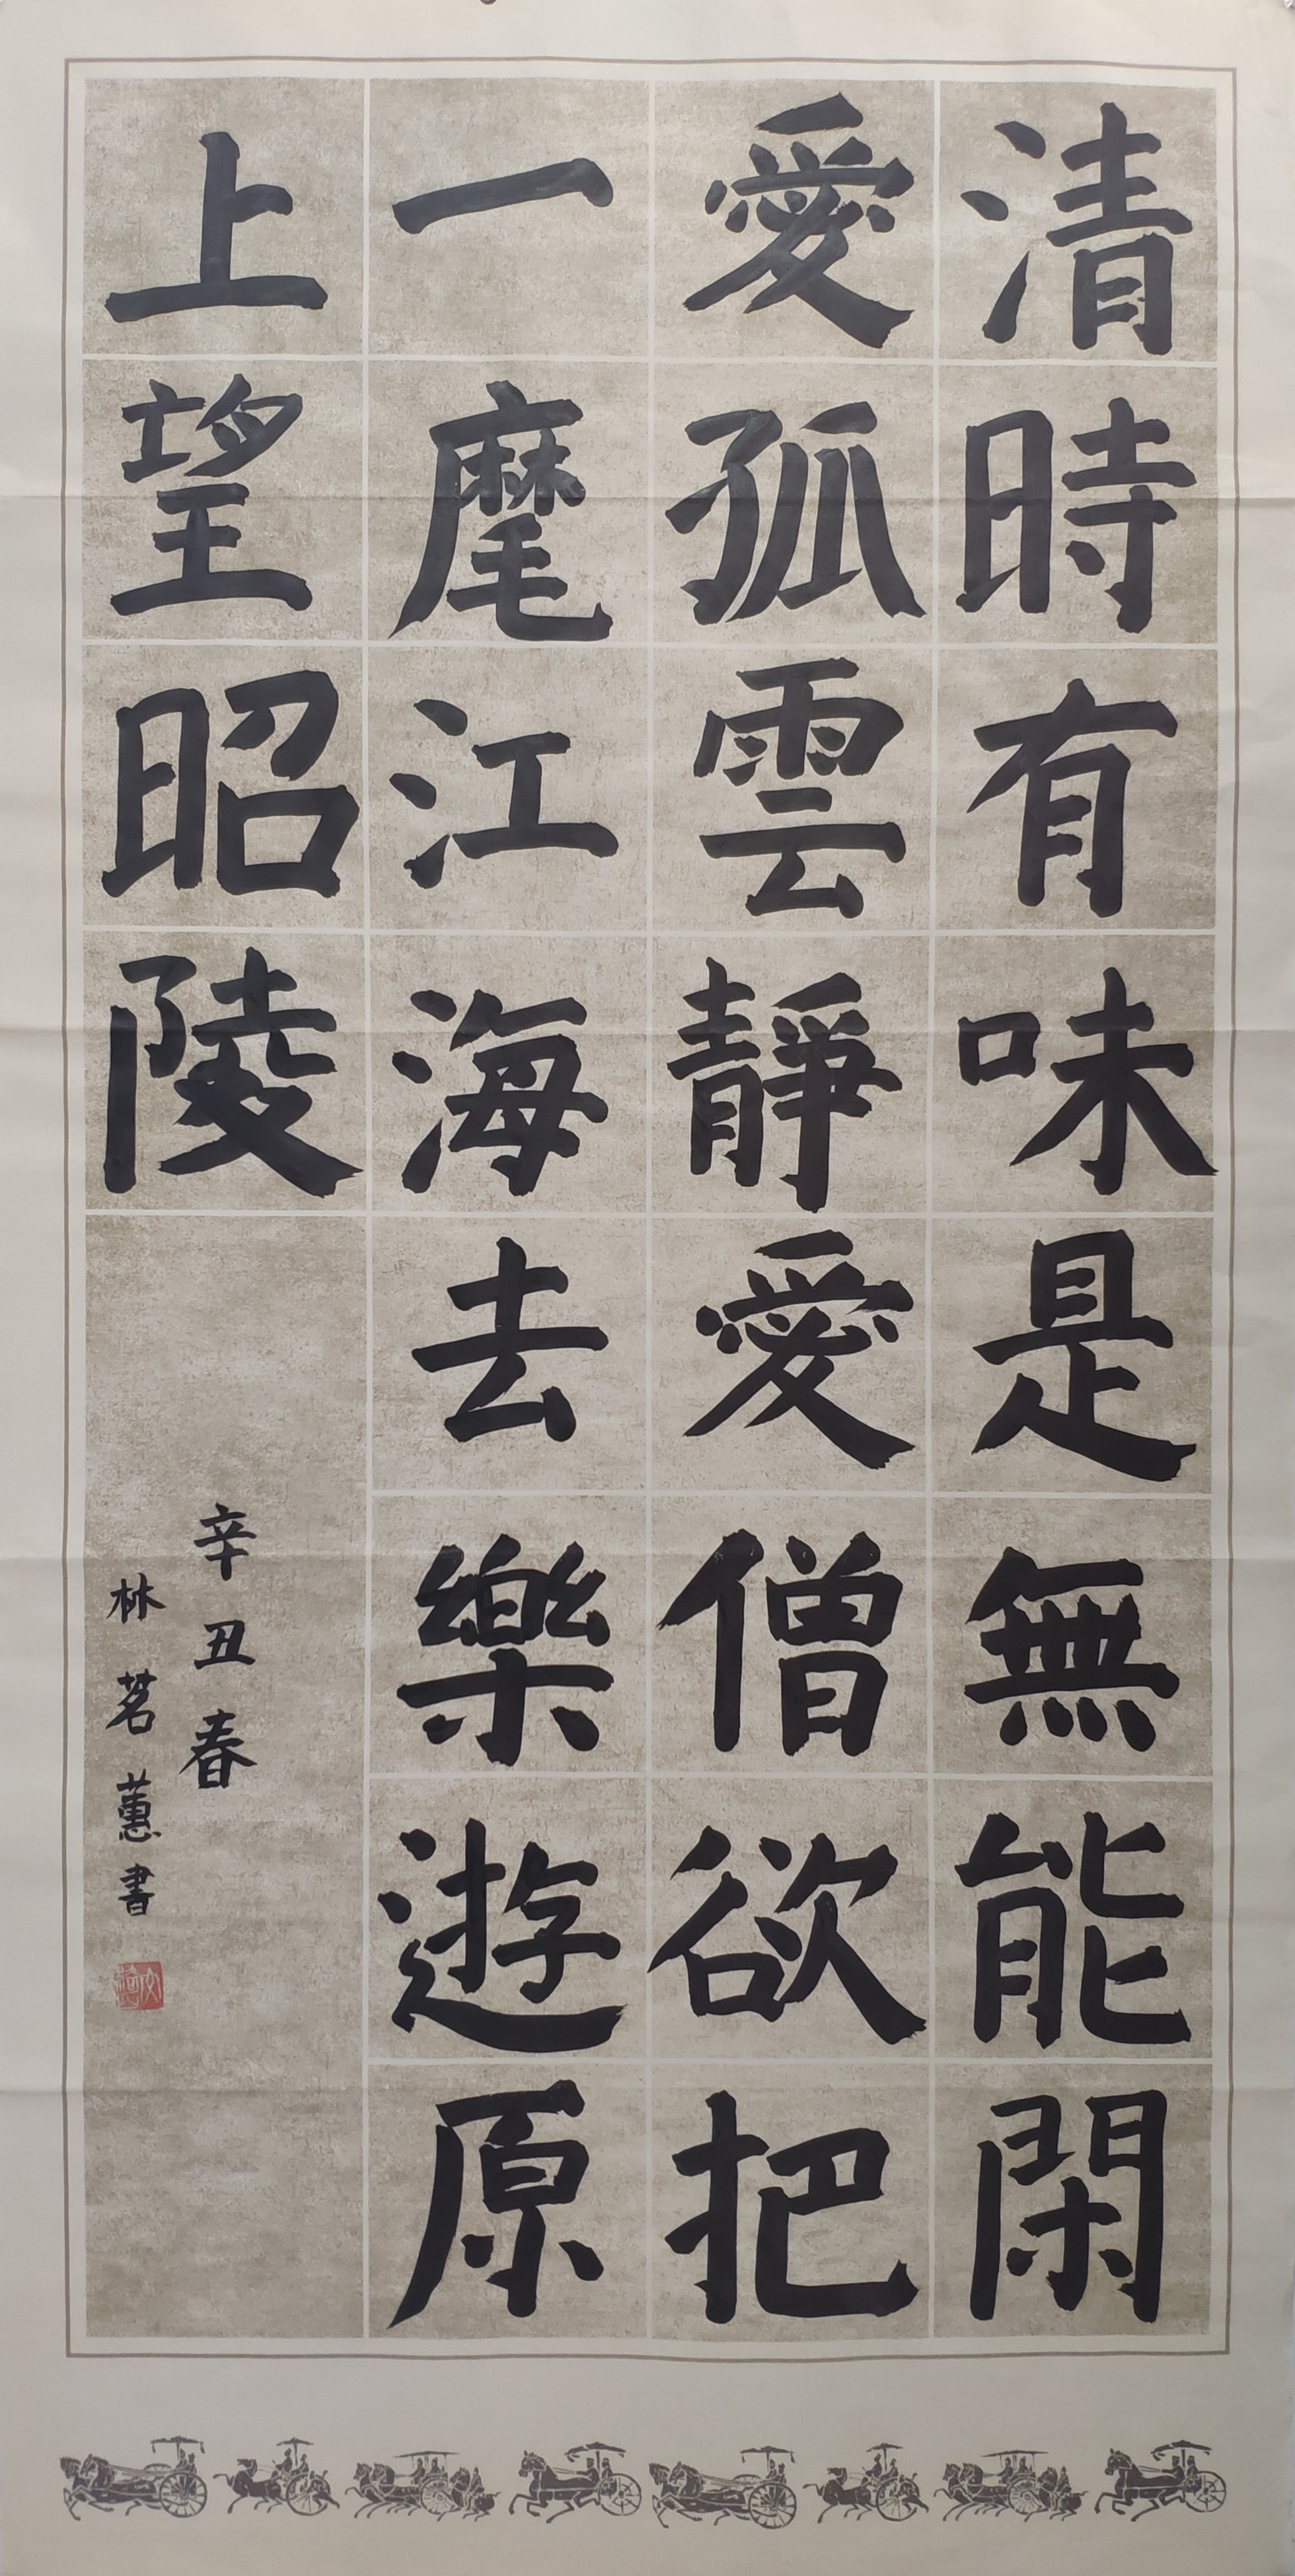 清時有味是無能閑
愛孤雲靜愛僧欲把
一麾江海去樂遊原
上望昭陵
辛丑春
林茗蕙書